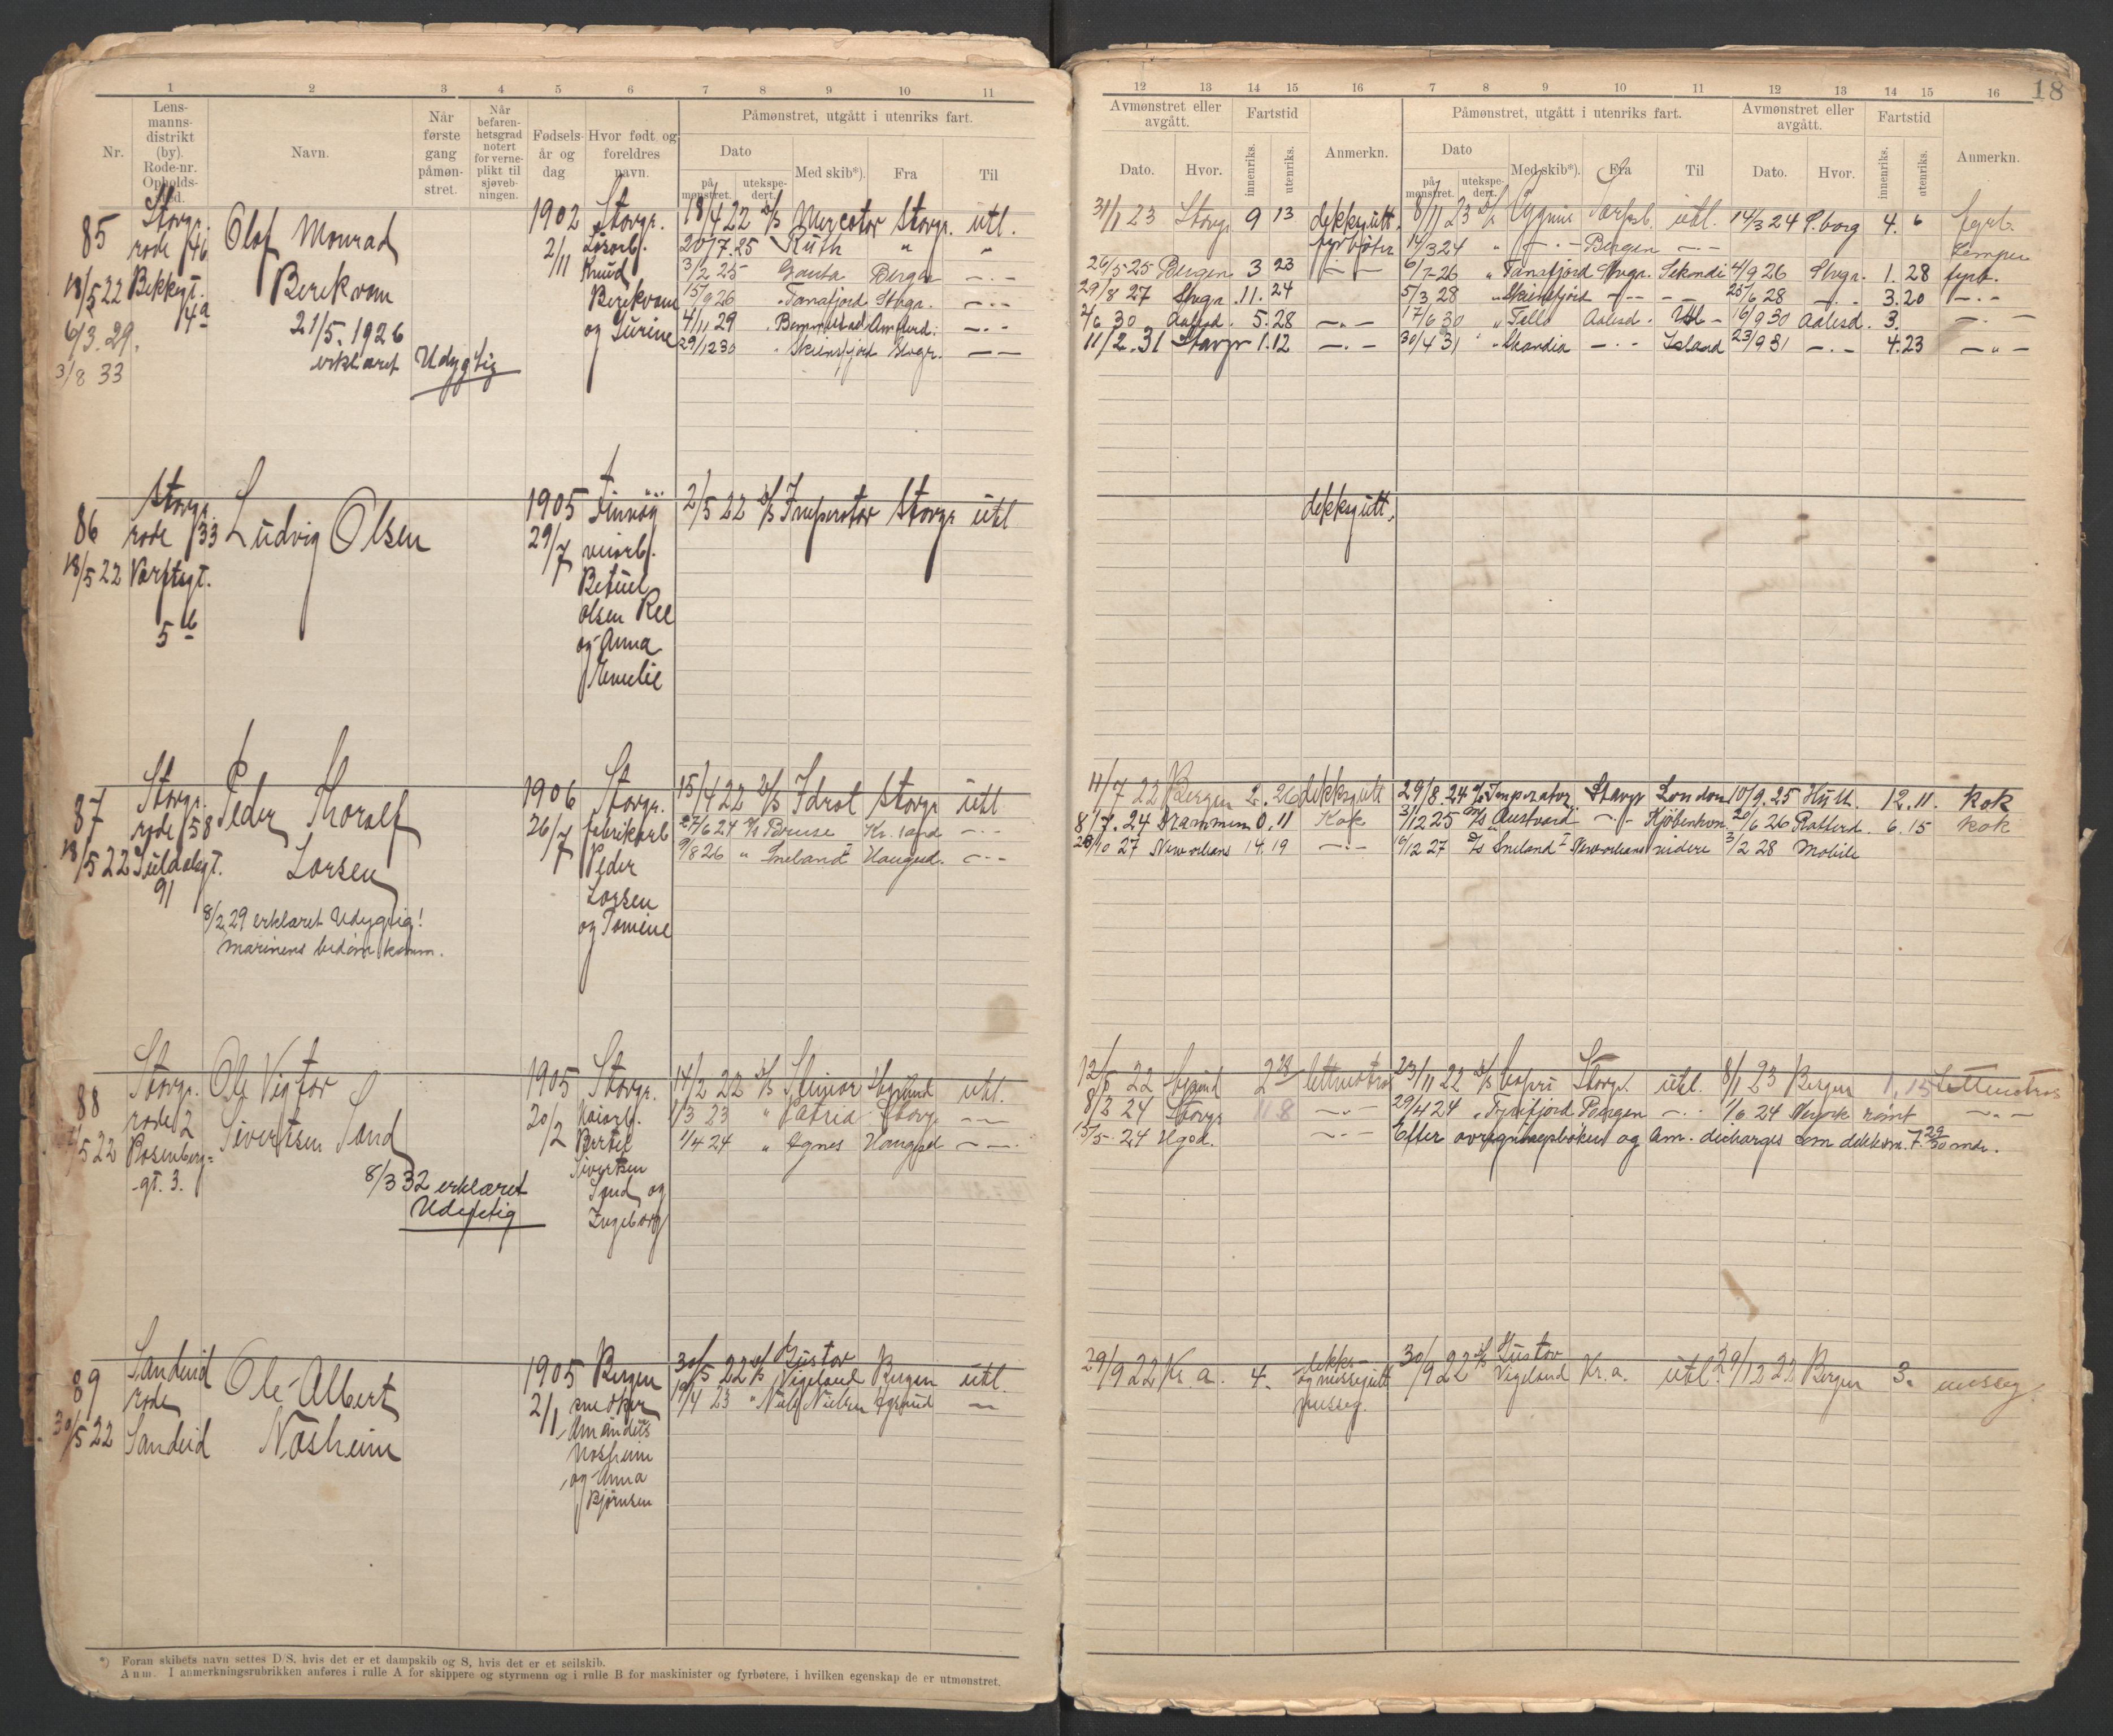 1 2 3 4 5 6 7 8 9 10 11
Nr.
Lens-
manns-
distrikt
(by).
Rode-nr.
Opholds-
sted.
Navn.
Når
første
gang
påmøn-
stret.
Når
befaren-
hetsgrad
notert
for verne-
plikt til
sjøveb-
ningen.
Fødsels-
år og
dag
Hvor født og
foreldres
navn.
Påmønstret, utgått i utenriks fart.
Dato
på
mønstret.
utekspe-
dert.
Med skib*).
Fra
Til
85
18/5 22
6/3. 29.
3/8 33
Stavgr.
rode 46
Bekkgt.
4a
Olaf Monrad
Berekvam
21/5. 1926
erklæret Udygtig
1902
2/11
Stavgr.
Løsarb.
Knud
Berekvam
og Gurine
18/4 22 D/S Mercator Stavgr. utl.
20/7. 25 Ruth " "
3/2 25 Gauta Bergen — · —
15/9 26 " Tanafjord Stvgr. — · —
4/11 29 Amsterd. — · —
29/12 30 " Skiensfjord Stvgr. — —
86
18/5 22
Stavgr.
rode 33
Verftsgt.
5b
Ludvig Olsen
1905
29/7
Finnöy
veiarb.
Betuel
Olsen Ree
og Anna
Emelie
2/5 22 D/S Imperator Stavgr utl
87
18/5 22
Stavgr.
rode 58
Suldalsgt.
91
Peder Thoralf
Larsen
8/2 29 erklæret Udygtig!
marinens bedøm. komm.
1906
26/7
Stavgr.
fabrikarb
Peder
Larsen
og Tomine
15/4 22 D/S Idrot Stavgr utl
27/6 24 Bruse Kr. sand — · —
9/8 26 " Sneland I Haugesd. — · —
88
5 22
Stavgr.
rode 2
Rosenberg-
gt. 3.
Ole Vigtor
Sivertsen Sand
8/3 32 erklæret
Udygtig
1905
20/2
Stavgr.
Kaiarb.
Bertel
Sivertsen
Sand og
Ingeborg
14/2 22 D/S Steinar Egersund utl.
1/3 23 " Astrid Stavgr — —
1/4 24 " Agnes Haugesd — — ·
89
30/5 22
Sandeid
rode
Sandeid
Ole Albert
Nåsheim
1905
2/1
Bergen
snedker
Amandus
Nosheim
og Anna
Bjørnsen
30/5 22 D/S Gustav
Vigeland Bergen utl.
19/4 23 " Niels Nielsen Egersund —
*) Foran skibets navn settes D/S, hvis det er et dampskib og S, hvis det er et seilskib.
Anm. I anmerkningsrubrikken anføres i rulle A for skippere og styrmenn og i rulle B for maskinister og fyrbøtere, i hvilken egenskap de er utmønstret.
12 13 14 15 16 7 8 9 10 11 12 13 14 15 16
18
Avmønstret eller
avgått.
Fartstid
Dato.
Hvor.
innenriks.
utenriks.
Anmerkn.
Påmønstret, utgått i utenriks fart.
Dato
på
mønstret.
utekspe-
dert.
Med skib*).
Fra
Til
Avmønstret eller
avgått.
Fartstid
Dato.
Hvor.
innenriks.
utenriks.
Anmerkn.
31/1 23 Stavgr 9 13 dekksgutt. 8/11 23 D/S Cygnus Sarpsb. utl. 14/3 24 P.borg 4. 6 fyrb.
fyrbøter 14/3 24 " — · — Bergen — · — Lemper
26/5 25 Bergen 3 23 — — 6/7-26 " Tanafjord Stvgr. Sekondi 4/9 26 Stvgr. 1. 28 fyrb.
29/8 27 Stvgr. 11. 24 5/3 28 " Skiensfjord — · — — 25/6 28 — · — 3. 20 — · —
2/6 30 Aalesd. 5. 28 — " — 17/6 30 " Tello Aalesd. Utl — 16/9 30 Aalesd. 3. — · —
11/2. 31 Stavgr 1. 12 — · — 30/4 31 " Skandia — · — Island 23/9 31 — · — 4. 23 — " —
dekksgutt.
11/7 22 Bergen 2. 26 dekksgutt 29/8. 24 D/S Imperator Stavgr London 10/9. 25 Hull. 12. 11. kok
8/7. 24 Drammen 0, 11 Kok 3/12 25 D/S Austvard — · — Kjøbenhvn. 20/6 26 Rotterd. 6. 15 kok
28/10 27 New orleans 14. 19 — · — 6/12 27 D/S Sneland I New orleans videre 3/2 28 Mobile
12/5 22 Egersund 2 lettmatros 23/11 22 D/S Capri Stavgr. utl. 8/1 23 Bergen 1, 15 Lettmatros
8/2 24 Stavgr 11 8 — " — 29/4 24 " Tyrifjord Bergen — · · 1/6 24 N york rømt — " —
15/5. 24 Hgsd. — · — Efter avregningsbøken og Am. discharges som dekksm. 7. 29/30 mdr.
29/9 22 Kr. a. 4. dekks-
og messegutt
messeg.
30/9 22 D/S Gustav
Vigeland Kr. a. utl. 29/12 22 Bergen 3. messeg.